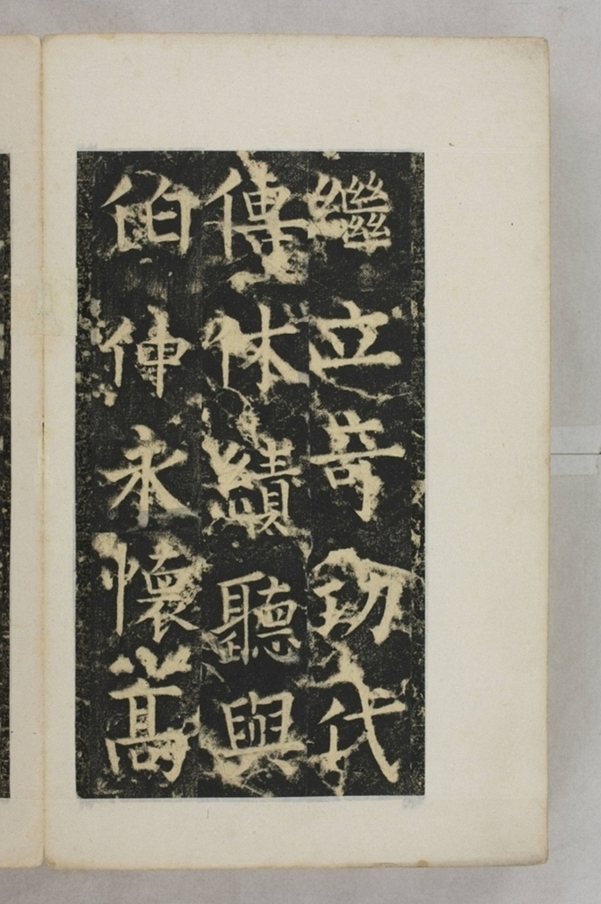 繼立奇功代
傳休績聽與
伯仲永懷嵩